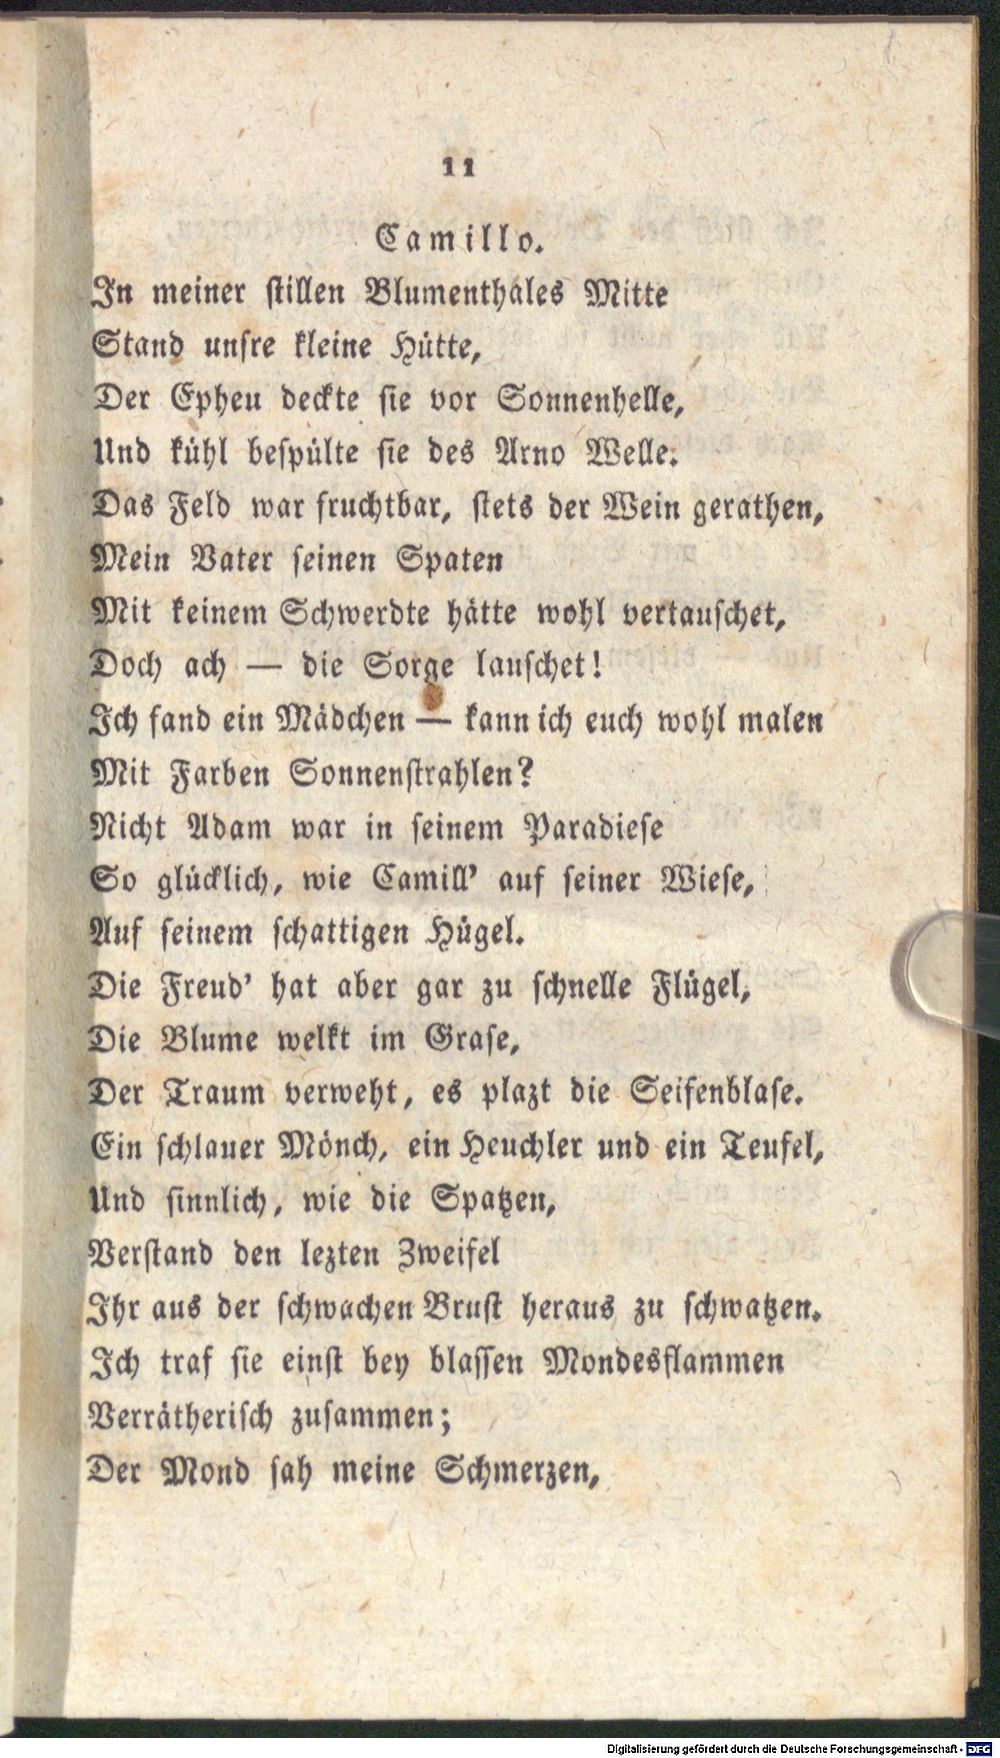 11
Camillo.
In meiner stillen Blumenthales Mitte
Stand unsre kleine Hütte,
Der Epheu deckte sie vor Sonnenhelle,
Und kühl bespülte sie des Arno Welle.
Das Feld war fruchtbar, stets der Wein gerathen,
Mein Vater seinen Spaten
Mit keinem Schwerdte hätte wohl vertauschet,
Doch ach — die Sorge lauschet!
Ich fand ein Mädchen — kann ich euch wohl malen
Mit Farben Sonnenstrahlen?
Nicht Adam war in seinem Paradiese
So glücklich, wie Camill' auf seiner Wiese,
Auf seinem schattigen Hügel.
Die Freud' hat aber gar zu schnelle Flügel,
Die Blume welkt im Grase,
Der Traum verweht, es plazt die Seifenblase.
Ein schlauer Mönch, ein Heuchler und ein Teufel,
Und sinnlich, wie die Spatzen,
Verstand den lezten Zweifel
Ihr aus der schwachen Brust heraus zu schwatzen.
Ich traf sie einst bey blassen Mondesflammen
Verrätherisch zusammen;
Der Mond sah meine Schmerzen,
Digitalisierung gefördert durch die Deutsche Forschungsgemeinschaft - DFG